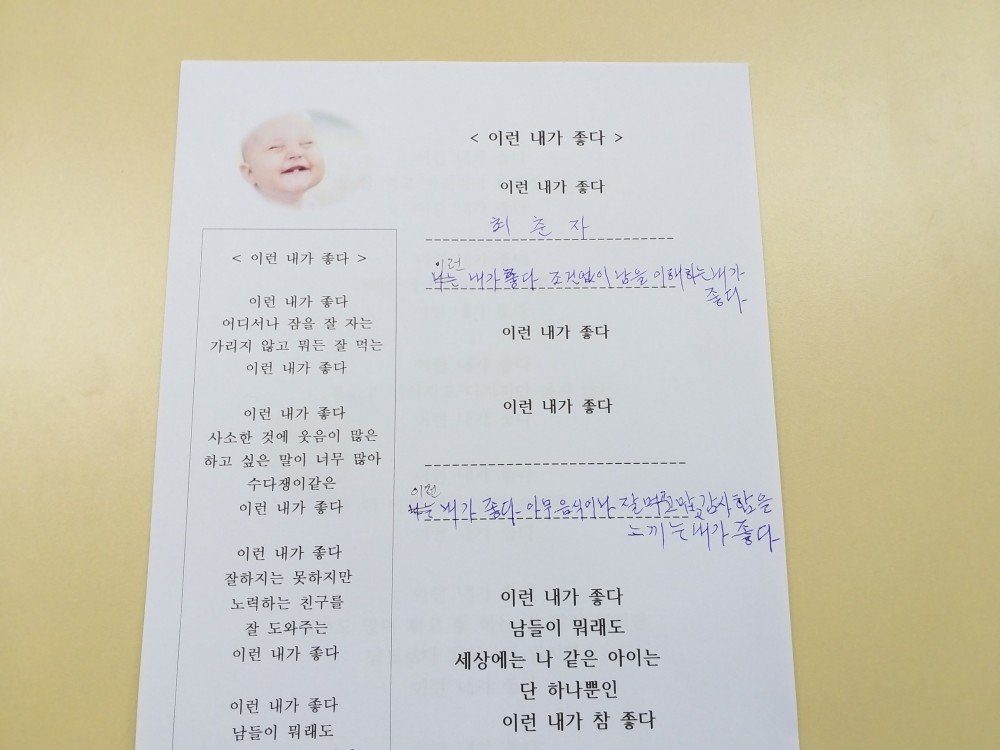 < 이런 내가 좋다 >
이런 내가 좋다
어디서나 잠을 잘 자는
가리지 않고 뭐든 잘 먹는
이런 내가 좋다
이런 내가 좋다
사소한 것에 웃음이 많은
하고 싶은 말이 너무 많아
수다쟁이같은
이런 내가 좋다
이런 내가 좋다
잘하지는 못하지만
노력하는 친구를
잘 도와주는
이런 내가 좋다
이런 내가 좋다
남들이 뭐래도
< 이런 내가 좋다 >
이런 내가 좋다
최 춘 자
이런
내가 좋다 조건없이 남을 이해하는 내가
좋다
이런 내가 좋다
이런 내가 좋다
이런
내가 좋다 아무음식이나 잘먹고 감사함을
느끼는 내가 좋다
이런 내가 좋다
남들이 뭐래도
세상에는 나 같은 아이는
단 하나뿐인
이런 내가 참 좋다